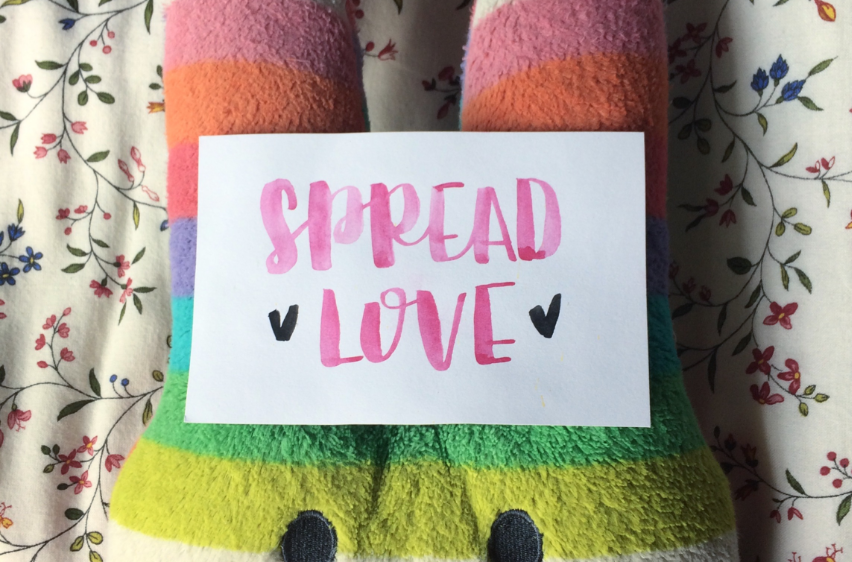 SPREAD
LOVE